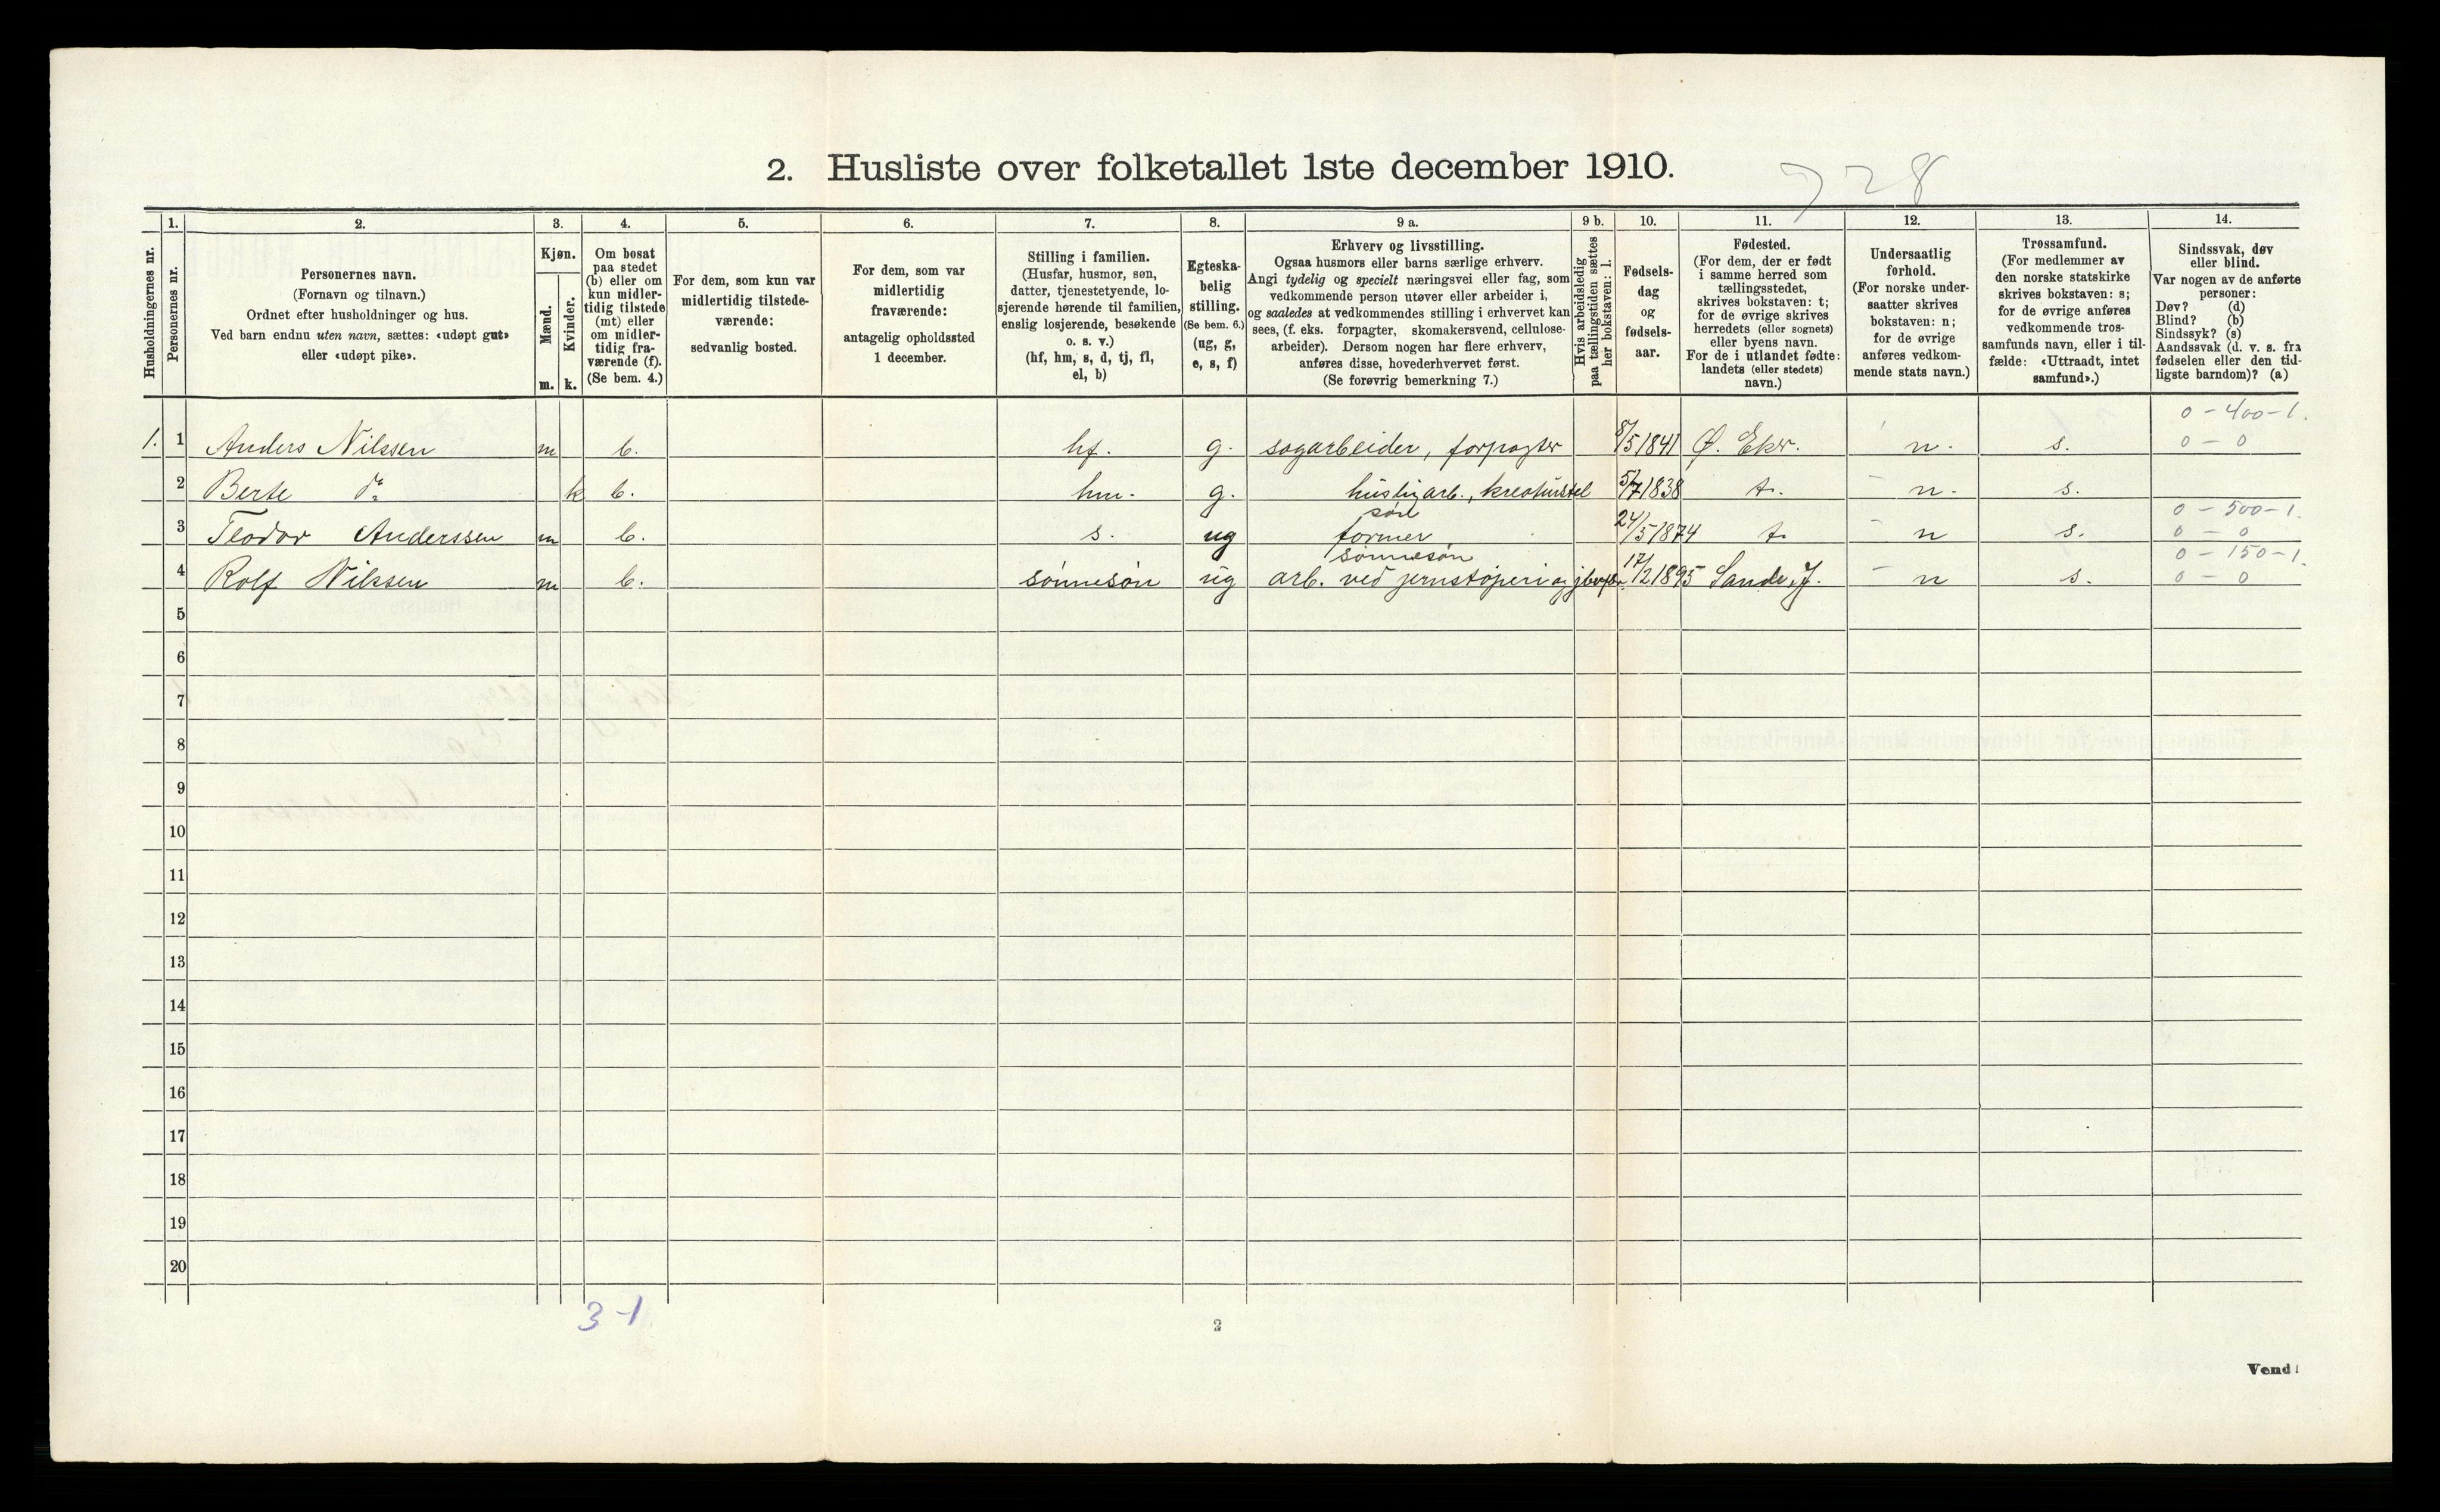 2. Husliste over folketallet 1ste december 1910.
728
Husholdningernes nr.
1.
Personernes nr.
2.
Personernes navn.
(Fornavn og tilnavn.)
Ordnet efter husholdninger og hus.
Ved barn endnu uten navn, sættes: «udøpt gut»
eller «udøpt pike».
3.
Kjøn.
Mænd.
Kvinder.
m. k.
4.
Om bosat
paa stedet
(b) eller om
kun midler-
tidig tilstede
(mt) eller
om midler-
tidig fra-
værende (f).
(Se bem. 4.)
5.
For dem, som kun var
midlertidig tilstede-
værende:
sedvanlig bosted.
6.
For dem, som var
midlertidig
fraværende:
antagelig opholdssted
1 december.
7.
Stilling i familien.
(Husfar, husmor, søn,
datter, tjenestetyende, lo-
sjerende hørende til familien,
enslig losjerende, besøkende
o. s. v.)
(hf, hm, s, d, tj, fl,
el, b)
8.
Egteska-
belig
stilling.
(Se bem. 6.)
(ug, g,
e, s, f)
9 a.
Erhverv og livsstilling.
Ogsaa husmors eller barns særlige erhverv.
Angi tydelig og specielt næringsvei eller fag, som
vedkommende person utøver eller arbeider i,
og saaledes at vedkommendes stilling i erhvervet kan
sees, (f. eks. forpagter, skomakersvend, cellulose-
arbeider). Dersom nogen har flere erhverv,
anføres disse, hovederhvervet først.
(Se forøvrig bemerkning 7.)
9 b.
Hvis arbeidsledig
paa tællingstiden sættes
her bokstaven: l.
10.
Fødsels-
dag
og
fødsels-
aar.
11.
Fødested.
(For dem, der er født
i samme herred som
tællingsstedet,
skrives bokstaven: t;
for de øvrige skrives
herredets (eller sognets)
eller byens navn.
For de i utlandet fødte:
landets (eller stedets)
navn.)
12.
Undersaatlig
forhold.
(For norske under-
saatter skrives
bokstaven: n;
for de øvrige
anføres vedkom-
mende stats navn.)
13.
Trossamfund.
(For medlemmer av
den norske statskirke
skrives bokstaven: s;
for de øvrige anføres
vedkommende tros-
samfunds navn, eller i til-
fælde: «Uttraadt, intet
samfund».)
14.
Sindssvak, døv
eller blind.
Var nogen av de anførte
personer:
Døv? (d)
Blind? (b)
Sindssyk? (s)
Aandssvak (d. v. s. fra
fødselen eller den tid-
ligste barndom)? (a)
0 - 400 - 1.
1. 1 Anders Nilssen m b. hf. g. sagarbeider, forpagter 8/5 1841 Ø. Eker. n. s. 0 - 0
2 Berte do k b. hm. g. huslig arb., kreaturstel 5/7 1838 t. n. s.
søn 0 - 500 - 1.
3 Teodor Anderssen m b. s. ug former 24/5 1874 t. n s. 0 - 0
sønnesøn 0 - 150 - 1.
4 Rolf Nilssen m b. sønnesøn ug arb. ved jernstøperi og 17/2 1895 Sande, J. n s. 0 - 0
5
6
7
8
9
10
11
12
13
14
15
16
17
18
19
20
3-1
2
Vend!